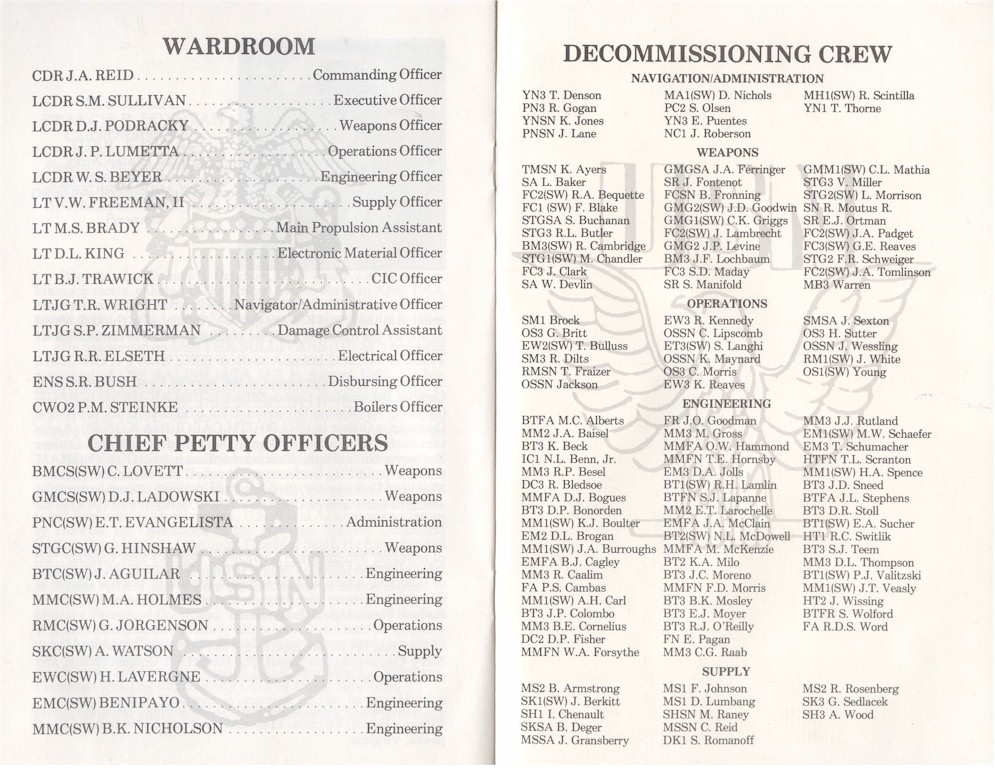 WARDROOM
CDR J.A. REID ...................... Commanding Officer
LCDR S.M. SULLIVAN .................. Executive Officer
LCDR D.J. PODRACKY .................. Weapons Officer
LCDR J. P. LUMETTA .................. Operations Officer
LCDR W. S. BEYER .................. Engineering Officer
LT V.W. FREEMAN, II .................. Supply Officer
LT M.S. BRADY ............... Main Propulsion Assistant
LT D.L. KING ............... Electronic Material Officer
LT B.J. TRAWICK ...................... CIC Officer
LTJG T.R. WRIGHT ........ Navigator/Administrative Officer
LTJG S.P. ZIMMERMAN ......... Damage Control Assistant
LTJG R.R. ELSETH .................. Electrical Officer
ENS S.R. BUSH .................. Disbursing Officer
CWO2 P.M. STEINKE .................. Boilers Officer
CHIEF PETTY OFFICERS
BMCS(SW) C. LOVETT .................. Weapons
GMCS(SW) D.J. LADOWSKI .................. Weapons
PNC(SW) E.T. EVANGELISTA ............ Administration
STGC(SW) G. HINSHAW .................. Weapons
BTC(SW) J. AGUILAR .................. Engineering
MMC(SW) M.A. HOLMES .................. Engineering
RMC(SW) G. JORGENSON .................. Operations
SKC(SW) A. WATSON ...................... Supply
EWC(SW) H. LAVERGNE .................. Operations
EMC(SW) BENIPAYO .................. Engineering
MMC(SW) B.K. NICHOLSON .................. Engineering
USN
DECOMMISSIONING CREW
NAVIGATION/ADMINISTRATION
YN3 T. Denson MA1(SW) D. Nichols MH1(SW) R. Scintilla
PN3 R. Gogan PC2 S. Olsen YN1 T. Thorne
YNSN K. Jones YN3 E. Puentes
PNSN J. Lane NC1 J. Roberson
WEAPONS
TMSN K. Ayers GMGSA J.A. Ferringer GMM1(SW) C.L. Mathia
SA L. Baker SR J. Fontenot STG3 V. Miller
FC2(SW) R.A. Bequette FCSN B. Fronning STG2(SW) L. Morrison
FC1 (SW) F. Blake GMG2(SW) J.D. Goodwin SN R. Moutus R.
STGSA S. Buchanan GMG1(SW) C.K. Griggs SR E.J. Ortman
STG3 R.L. Butler FC2(SW) J. Lambrecht FC2(SW) J.A. Padget
BM3(SW) R. Cambridge GMG2 J.P. Levine FC3(SW) G.E. Reaves
STG1(SW) M. Chandler BM3 J.F. Lochbaum STG2 F.R. Schweiger
FC3 J. Clark FC3 S.D. Maday FC2(SW) J.A. Tomlinson
SA W. Devlin SR S. Manifold MB3 Warren
OPERATIONS
SM1 Brock EW3 R. Kennedy SMSA J. Sexton
OS3 G. Britt OSSN C. Lipscomb OS3 H. Sutter
EW2(SW) T. Bulluss ET3(SW) S. Langhi OSSN J. Wessling
SM3 R. Dilts OSSN K. Maynard RM1(SW) J. White
RMSN T. Fraizer OS3 C. Morris OS1(SW) Young
OSSN Jackson EW3 K. Reaves
ENGINEERING
BTFA M.C. Alberts FR J.O. Goodman MM3 J.J. Rutland
MM2 J.A. Baisel MM3 M. Gross EM1(SW) M.W. Schaefer
BT3 K. Beck MMFA O.W. Hammond EM3 T. Schumacher
IC1 N.L. Benn, Jr. MMFN T.E. Hornsby HTFN T.L. Scranton
MM3 R.P. Besel EM3 D.A. Jolls MM1(SW) H.A. Spence
DC3 R. Bledsoe BT1(SW) R.H. Lamlin BT3 J.D. Sneed
MMFA D.J. Bogues BTFN S.J. Lapanne BTFA J.L. Stephens
BT3 D.P. Bonorden MM2 E.T. Larochelle BT3 D.R. Stoll
MM1(SW) K.J. Boulter EMFA J.A. McClain BT1(SW) E.A. Sucher
EM2 D.L. Brogan BT2(SW) N.L. McDowell HT1 R.C. Switlik
MM1(SW) J.A. Burroughs MMFA M. McKenzie BT3 S.J. Teem
EMFA B.J. Cagley BT2 K.A. Milo MM3 D.L. Thompson
MM3 R. Caalim BT3 J.C. Moreno BT1(SW) P.J. Valitzski
FA P.S. Cambas MMFN F.D. Morris MM1(SW) J.T. Veasly
MM1(SW) A.H. Carl BT3 B.K. Mosley HT2 J. Wissing
BT3 J.P. Colombo BT3 E.J. Moyer BTFR S. Wolford
MM3 B.E. Cornelius BT3 R.J. O'Reilly FA R.D.S. Word
DC2 D.P. Fisher FN E. Pagan
MMFN W.A. Forsythe MM3 C.G. Raab
SUPPLY
MS2 B. Armstrong MS1 F. Johnson MS2 R. Rosenberg
SK1(SW) J. Berkitt MS1 D. Lumbang SK3 G. Sedlacek
SH1 I. Chenault SHSN M. Raney SH3 A. Wood
SKSA B. Deger MSSN C. Reid
MSSA J. Gransberry DK1 S. Romanoff